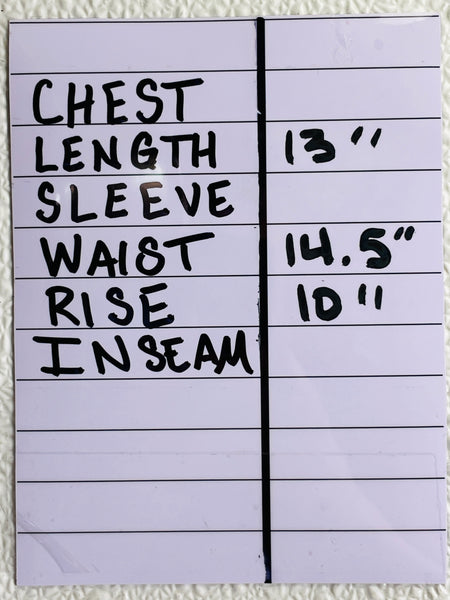 CHEST
LENGTH 13"
SLEEVE
WAIST 14.5"
RISE 10"
INSEAM